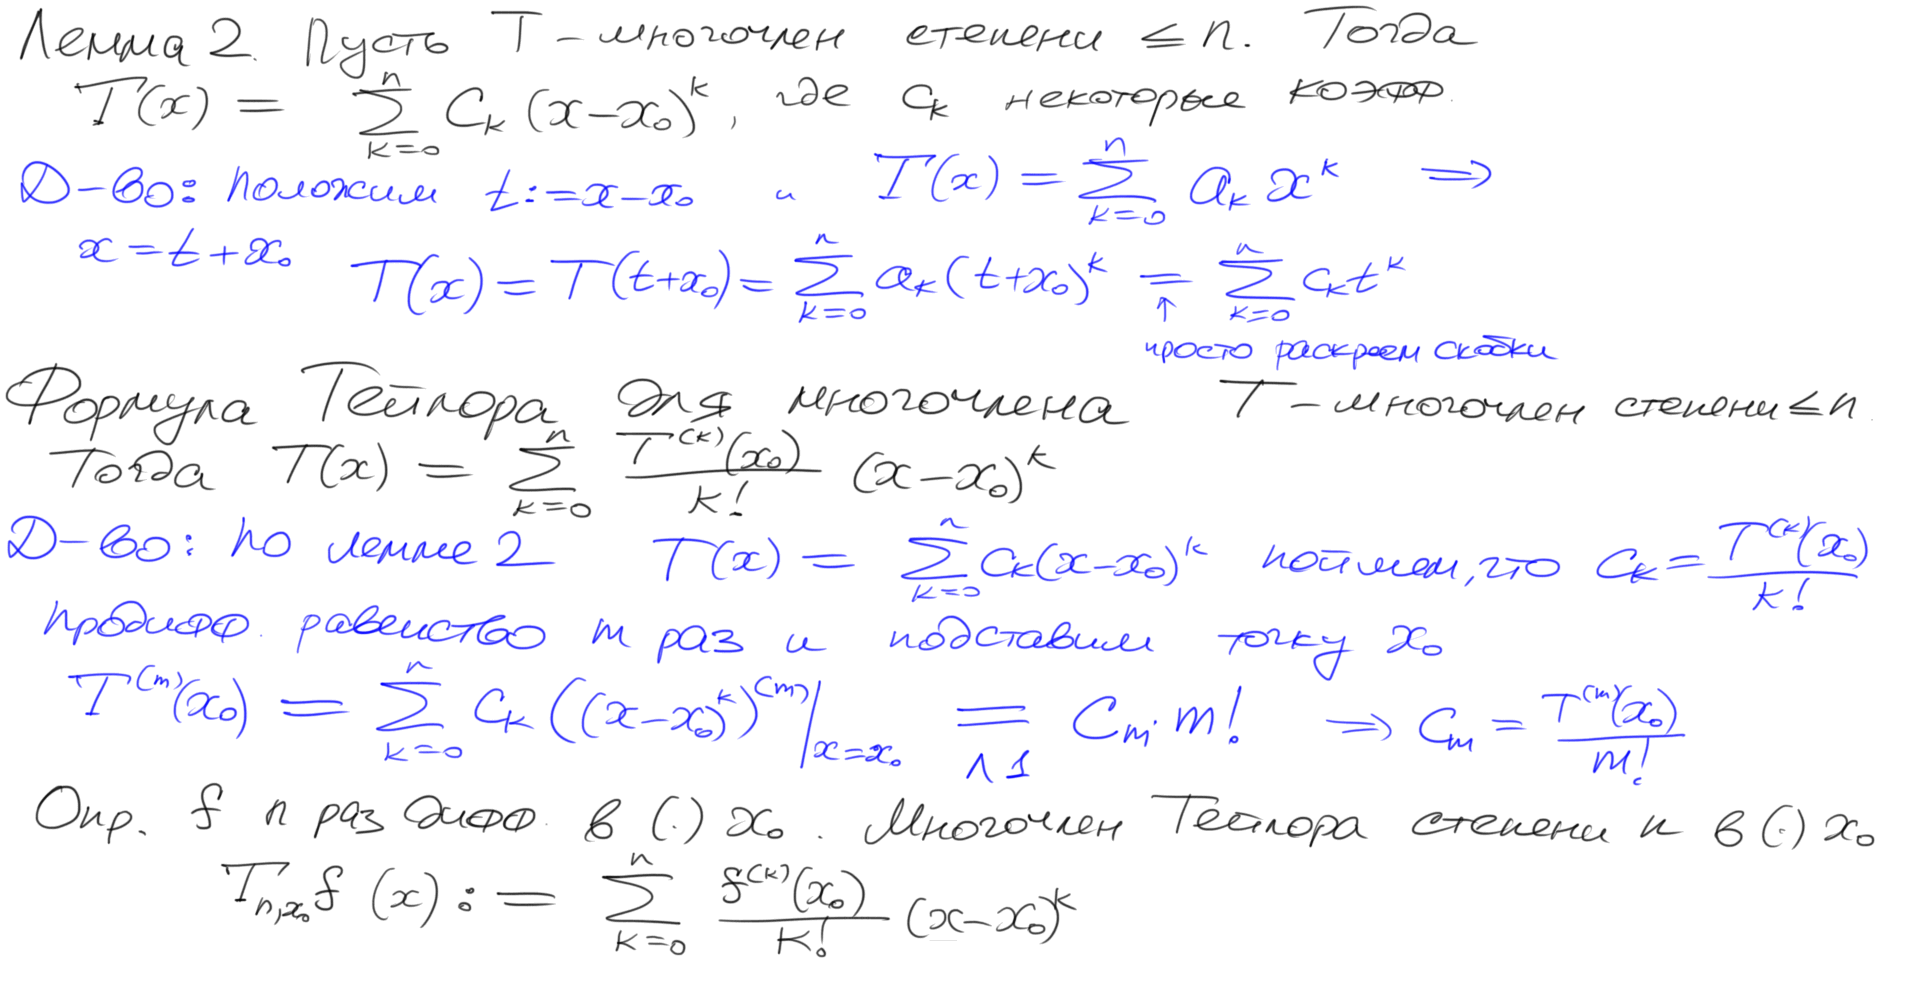 Лемма 2. Пусть T – многочлен степени ≤ n. Тогда
T(x) = ∑_{k=0}^{n} c_k (x-x_0)^k, где c_k некоторые коэфф.
Д-во: Положим t := x-x_0 и T(x) = ∑_{k=0}^{n} a_k x^k ⇒
x = t + x_0 T(x) = T(t+x_0) = ∑_{k=0}^{n} a_k (t+x_0)^k = ∑_{k=0}^{n} c_k t^k
↑
просто раскроем скобки
Формула Тейлора для многочлена T – многочлен степени ≤ n.
Тогда T(x) = ∑_{k=0}^{n} T^{(k)}(x_0)/k! (x-x_0)^k
Д-во: по лемме 2 T(x) = ∑_{k=0}^{n} c_k (x-x_0)^k поймем, что c_k = T^{(k)}(x_0)/k!
Продифф. равенство m раз и подставим точку x_0
T^{(m)}(x_0) = ∑_{k=0}^{n} c_k ((x-x_0)^k)^{(m)} |_{x=x_0} =_{Л1} c_m · m! ⇒ c_m = T^{(m)}(x_0)/m!
Опр. f n раз дифф. в (·) x_0. Многочлен Тейлора степени n в (·) x_0
T_{n,x_0} f (x) := ∑_{k=0}^{n} f^{(k)}(x_0)/k! (x-x_0)^k